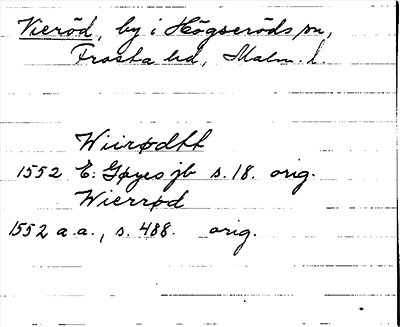 Vieröd, by i Högseröds sn,
Frosta hd, Malm. l.
Wiirødtt
1552 E. Gøyes jb s. 18. orig.
Wierrød
1552 a.a., s. 488. orig.